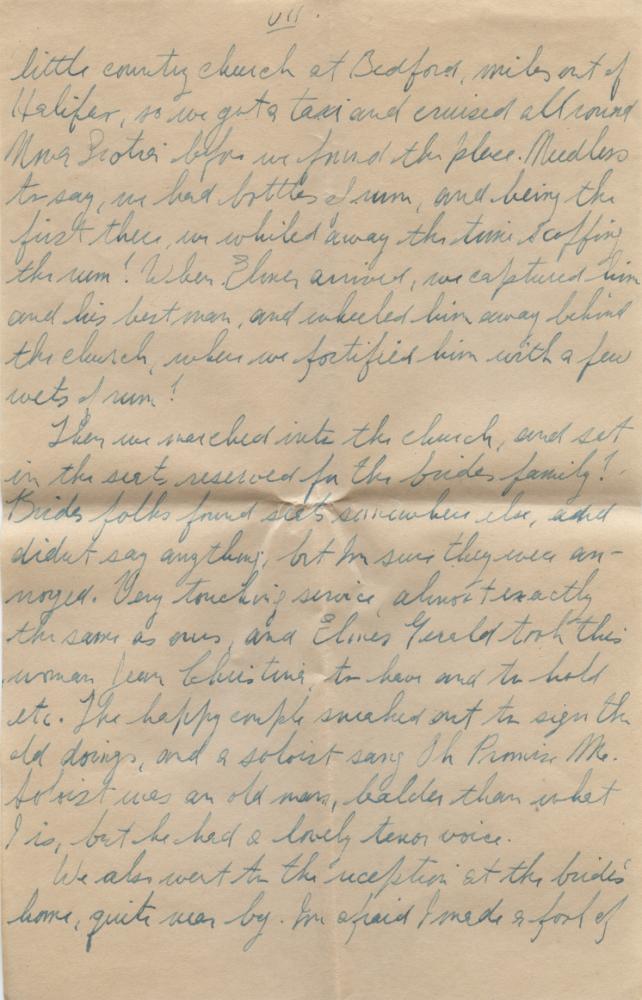 VII.
little country church at Bedford, miles out of
Halifax, so we got a taxi and cruised all round
Nova Scotia before we found the place. Needless
to say, we had bottles of rum, and being the
first there, we whiled away the time scoffing
the rum! When Elmer arrived, we captured him
and his best man, and wheeled him away behind
the church, where we fortified him with a few
wets of rum!
Then we marched into the church, and sat
in the seats reserved for the brides family!
Brides folks found seats somewhere else, and
didn't say anything, but I'm sure they were an-
noyed. Very touching service, almost exactly
the same as ours, and Elmer Gerald took this
woman Jean Christina, to have and to hold
etc. The happy couple sneaked out to sign the
old doings, and a soloist sang Oh Promise Me.
Soloist was an old man, balder than what
I is, but he had a lovely tenor voice.
We also went to the reception at the bride's
home, quite near by. I'm afraid I made a fool of